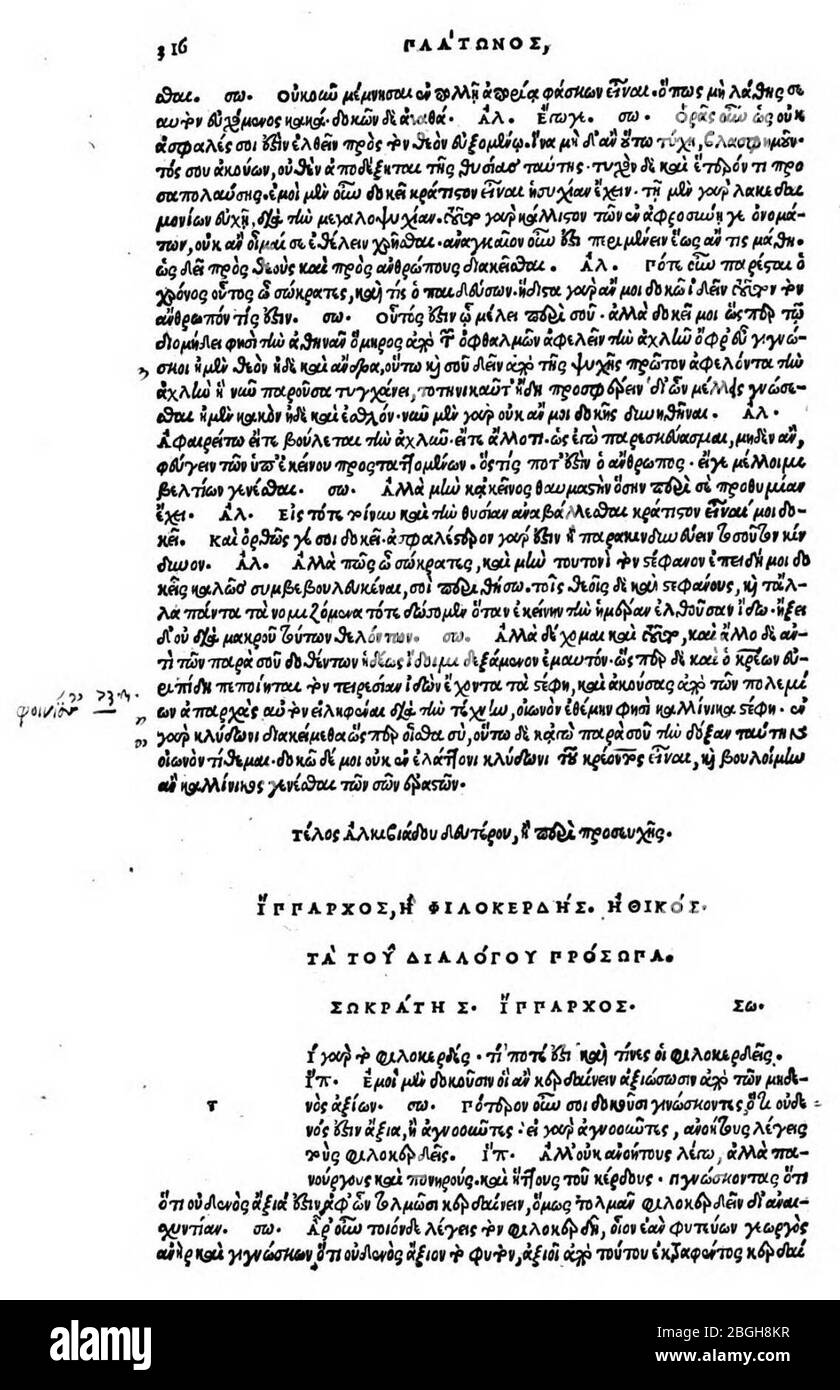 316 ΠΛΑ´ΤΩΝΟΣ,
σθαι. σω. Οὐκοῦν μέμνησαι ἐν πολλῇ ἀπορίᾳ φάσκων εἶναι. ὅπως μὴ λάθῃς σε
αυτὸν εὐχόμενος κακά. δοκῶν δὲ ἀγαθά. Αλ. Εγωγε. σω. Ορᾷς οὖν ὡς οὐκ
ἀσφαλές σοι ὅζιν ἐλθεῖν πρὸς τὸν θεὸν εὐξομένῳ. ἵνα μὴ δ' ἂν οὕτω τύχῃ, βλασφημοῦν
τός σου ἀκούων, οὐθὲν ἀποδέξηται τῆς θυσίας ταύτης. τυχὸν δὲ καὶ ἕτερόν τι προ
σαπολαύσῃς. ἐμοὶ μὲν οὖν δοκεῖ κράτιστον εἶναι ἡσυχίαν ἔχειν. τῇ μὲν γὰρ λακεδαι
μονίων εὐχῇ, διὰ τὴν μεγαλοψυχίαν. τοῦτο γὰρ κάλλιστον τῶν ἐν ἀφροσύνῃ γε ὀνομά-
των, οὐκ ἂν οἶμαί σε ἐθέλειν χρῆσθαι. ἀναγκαῖον οὖν ἐστὶ περιμένειν ἕως ἄν τις μάθῃ.
ὡς δεῖ πρὸς θεοὺς καὶ πρὸς ἀνθρώπους διακεῖσθαι. Αλ. Πότε οὖν παρέσται ὁ
χρόνος οὗτος ὦ σώκρατες, καὶ τίς ὁ παιδεύσων. ἥδιστα γὰρ ἄν μοι δοκῶ ἰδεῖν τοῦτον τὸν
ἄνθρωπόν τίς ἐστιν. σω. Οὗτός ἐστιν ᾧ μέλει περὶ σοῦ. ἀλλὰ δοκεῖ μοι ὥσπερ τῷ
διομήδει φησὶ τὴν ἀθηνᾶν ὅμηρος ἀπὸ τῶν ὀφθαλμῶν ἀφελεῖν τὴν ἀχλὺν ὄφρ' εὖ γιγνώ-
σκοι ἠμὲν θεὸν ἠδὲ καὶ ἄνδρα, οὕτω καὶ σοῦ δεῖν ἀπὸ τῆς ψυχῆς πρῶτον ἀφελόντα τὴν
ἀχλὺν ἣ νῦν παροῦσα τυγχάνει, τοτηνικαῦτ' ἤδη προσφέρειν δι' ὧν μέλλεις γνώσε-
σθαι ἠμὲν κακὸν ἠδὲ καὶ ἐσθλόν. νῦν μὲν γὰρ οὐκ ἄν μοι δοκῇς δυνηθῆναι. Αλ.
Αφαιρείτω εἴτε βούλεται τὴν ἀχλὺν. εἴτε ἄλλο τι. ὡς ἐγὼ παρεσκεύασμαι, μηδὲν ἂν,
φεύγειν τῶν ὑπ' ἐκείνου προσταττομένων. ὅστίς ποτ' ἐστὶν ὁ ἄνθρωπος. εἴγε μέλλοιμι
βελτίων γενέσθαι. σω. Αλλὰ μὴν κἀκεῖνος θαυμαστὴν ὅσην περὶ σὲ προθυμίαν
ἔχει. Αλ. Εἰς τότε τοίνυν καὶ τὴν θυσίαν ἀναβάλλεσθαι κράτιστον εἶναί μοι δο-
κεῖ. Καὶ ὀρθῶς γέ σοι δοκεῖ. ἀσφαλέστερον γάρ ἐστιν ἢ παρακινδυνεύειν τοσοῦτον κίν
δυνον. Αλ. Αλλὰ πῶς ὦ σώκρατες, καὶ μὴν τουτονὶ τὸν στέφανον ἐπειδή μοι δο
κεῖς καλῶς συμβεβουλευκέναι, σοὶ περιθήσω. τοῖς θεοῖς δὲ καὶ στεφάνους, καὶ τἄλ-
λα πάντα τὰ νομιζόμενα τότε δώσομεν ὅταν ἐκείνην τὴν ἡμέραν ἐλθοῦσαν ἴδω. ἥξει
δ' οὐ διὰ μακροῦ τούτων θελόντων. σω. Αλλὰ δέχομαι καὶ τοῦτο, καὶ ἄλλο δὲ ἄν
τι τῶν παρὰ σοῦ δοθέντων ἡδέως ἴδοιμι δεξάμενον ἐμαυτόν. ὥσπερ δὲ καὶ ὁ κρέων εὐ-
ριπίδῃ πεποίηται τὸν τειρεσίαν ἰδὼν ἔχοντα τὰ στέφη, καὶ ἀκούσας ἀπὸ τῶν πολεμί
ων ἀπαρχὰς αὐτὸν εἰληφέναι διὰ τὴν τέχνην, οἰωνὸν ἐθέμην φησὶ καλλίνικα στέφη. ἐν
γὰρ κλύδωνι διακείμεθα ὥσπερ οἶσθα σύ, οὕτω δὲ κἀγὼ παρὰ σοῦ τὴν δόξαν ταύτην
οἰωνὸν τίθεμαι. δοκῶ δέ μοι οὐκ ἐν ἐλάττονι κλύδωνι τοῦ κρέοντος εἶναι, καὶ βουλοίμην
ἂν καλλίνικος γενέσθαι τῶν σῶν ἐραστῶν.
τέλος Αλκιβιάδου δευτέρου, ἢ περὶ προσευχῆς.
ἽΠΠΑΡΧΟΣ, Ἢ ΦΙΛΟΚΕΡΔΉΣ. ἨΘΙΚΌΣ.
ΤᾺ ΤΟΥ͂ ΔΙΑΛΌΓΟΥ ΠΡΌΣΩΠΑ.
ΣΩΚΡΆΤΗΣ. ἽΠΠΑΡΧΟΣ. Σω.
Ι γὰρ τὸ φιλοκερδές. τί ποτέ ἐστι καὶ τίνες οἱ φιλοκερδεῖς.
Ιπ. Εμοὶ μὲν δοκοῦσιν οἳ ἂν κερδαίνειν ἀξιώσωσιν ἀπὸ τῶν μηδε-
τ νὸς ἀξίων. σω. Πότερον οὖν σοι δοκοῦσι γινώσκοντες ὅτι οὐδε
νός ἐστιν ἄξια, ἢ ἀγνοοῦντες. εἰ γὰρ ἀγνοοῦντες, ἀνοήτους λέγεις
τοὺς φιλοκερδεῖς. Ιπ. Αλλ' οὐκ ἀνοήτους λέγω, ἀλλὰ πα-
νούργους καὶ πονηρούς. καὶ ἥττους τοῦ κέρδους. γιγνώσκοντας ὅτι
ὅτι οὐδενὸς ἄξιά ἐστιν, ἀφ' ὧν τολμῶσι κερδαίνειν, ὅμως τολμᾶν φιλοκερδεῖν δι' ἀναι-
σχυντίαν. σω. Αρ' οὖν τοιόνδε λέγεις τὸν φιλοκερδῆ, οἷον ἐὰν φυτεύων γεωργὸς
ἀνὴρ καὶ γιγνώσκων, ὅτι οὐδενὸς ἄξιον τὸ φυτὸν, ἀξιοῖ ἀπὸ τούτου ἐκτραφέντος κερδαί
alamy
Image ID: 2BGH8KR
www.alamy.com